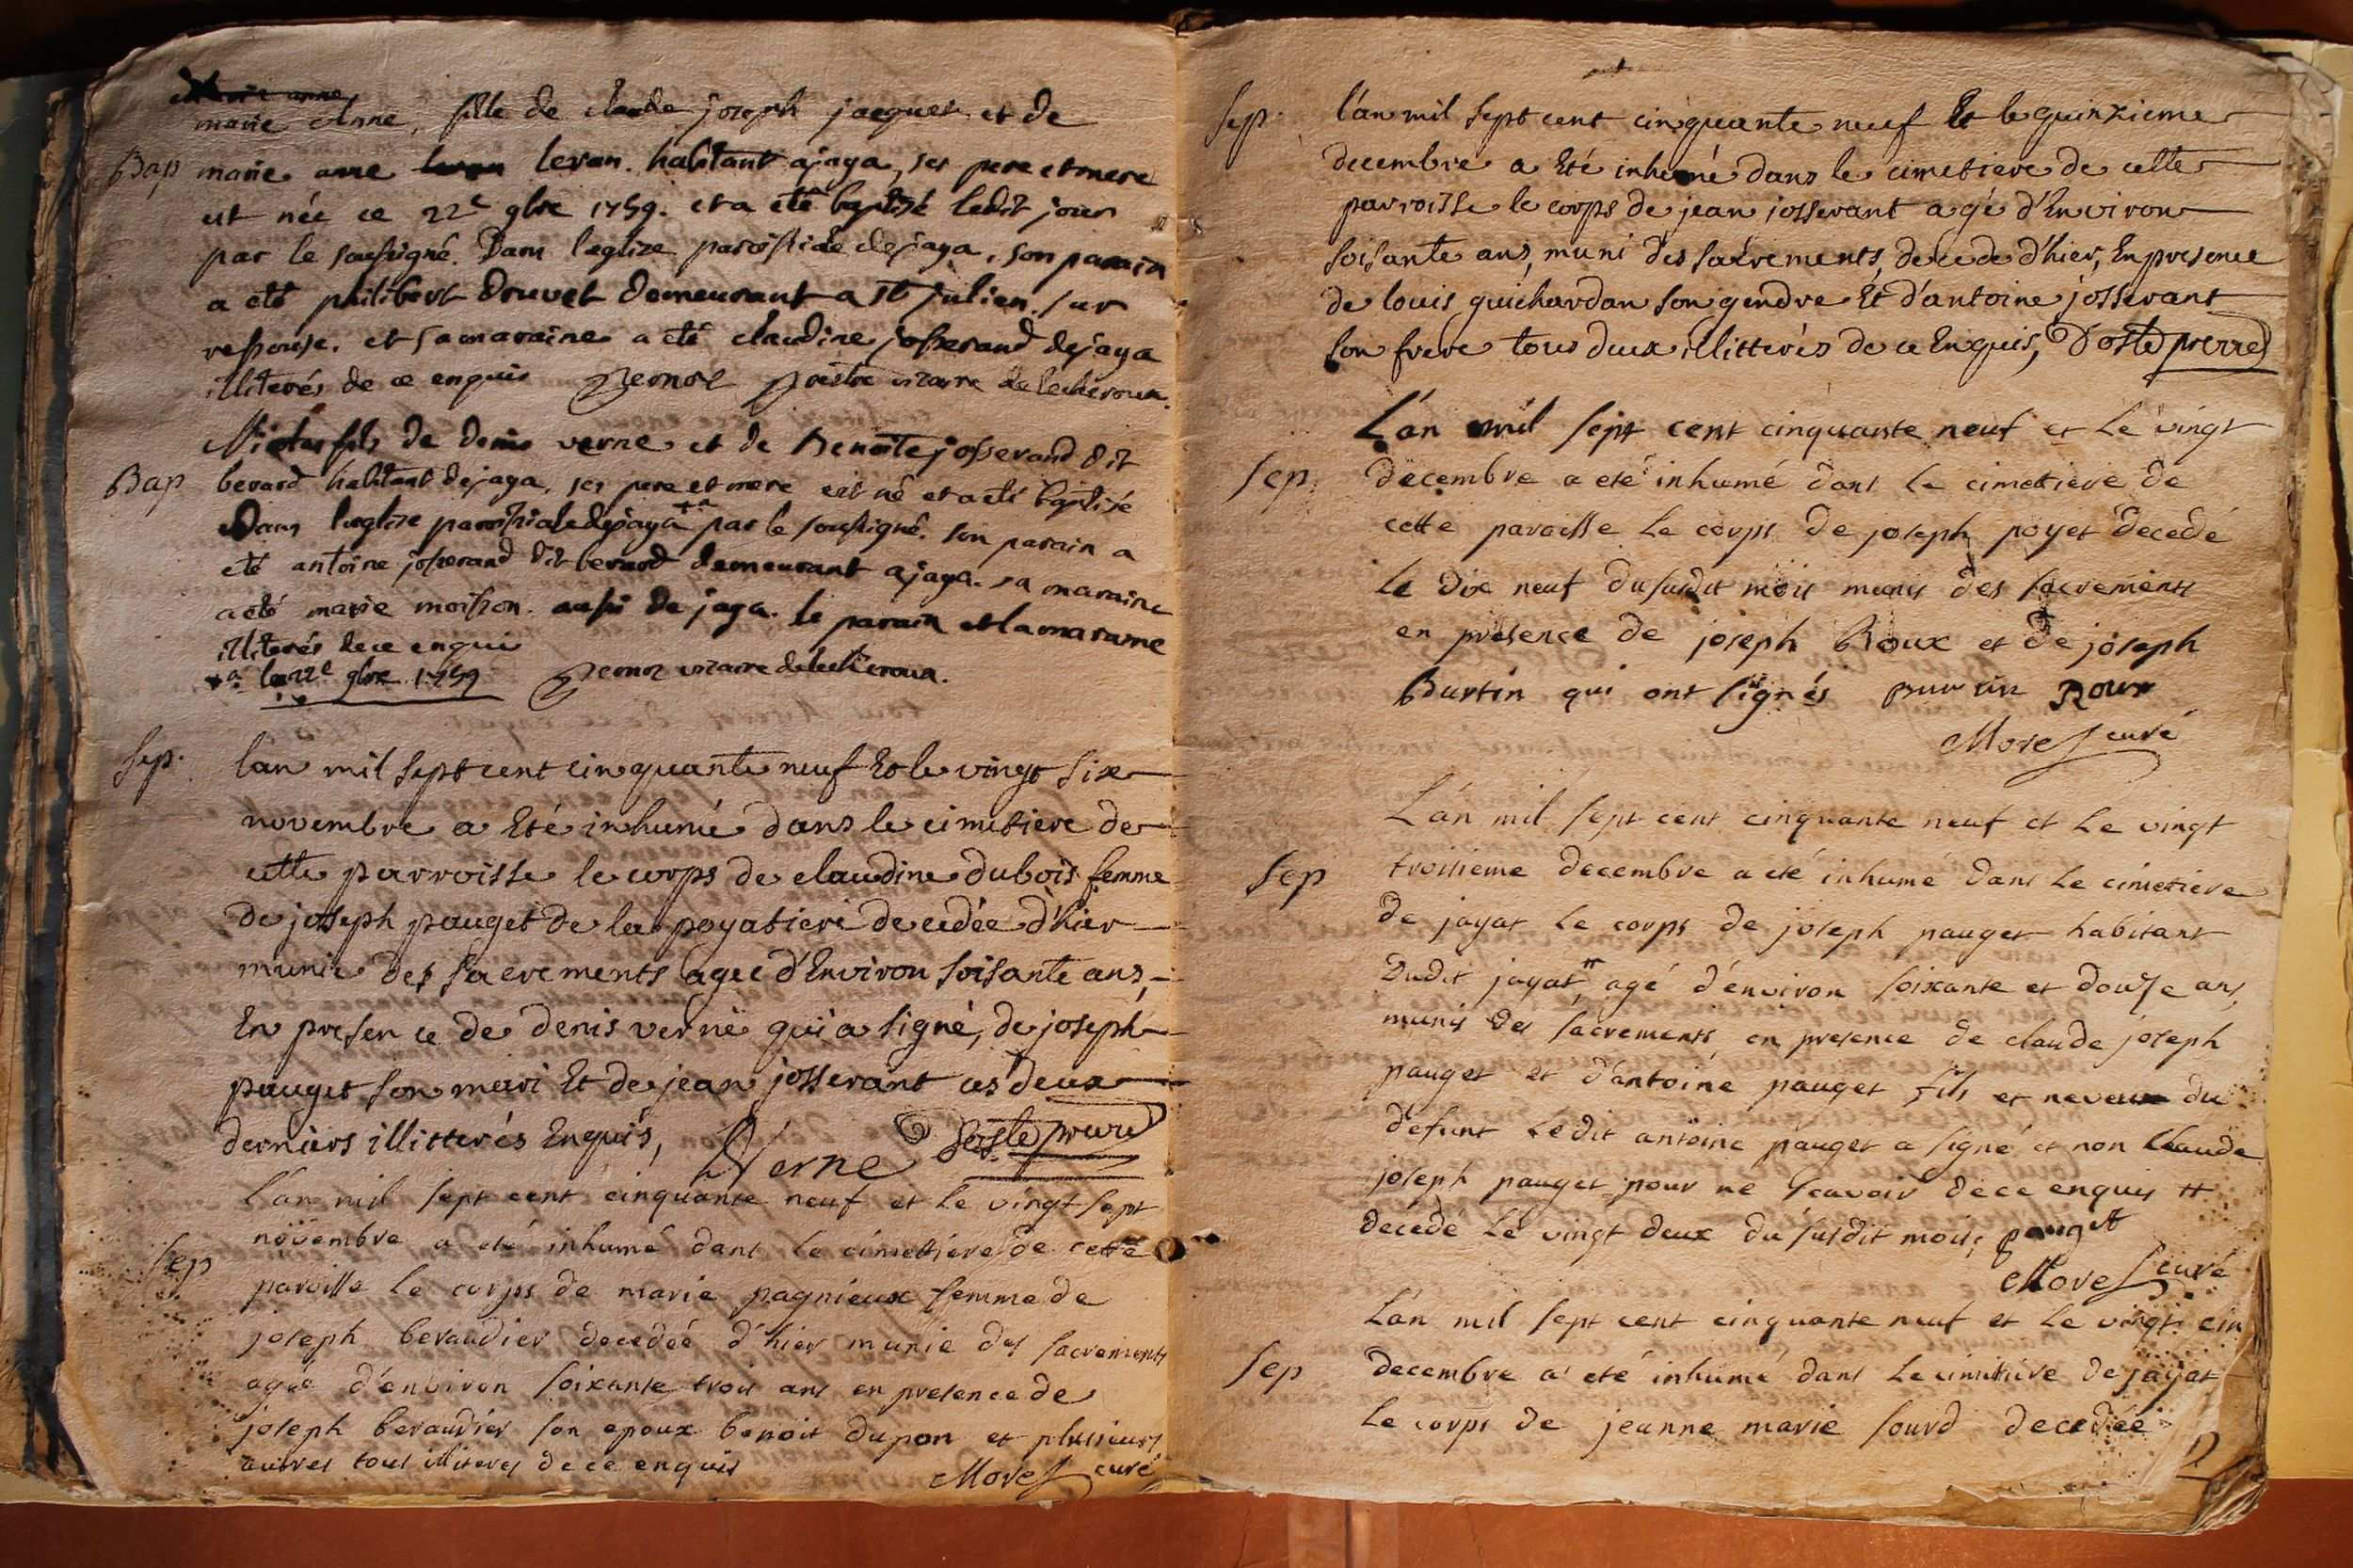 marie Anne, fille de claude joseph jacquet et de
Bap marie anne levan. habitant a jaya, ses pere et mere
est née ce 22e 9bre 1759. et a eté baptisé ledit jour
par le soussigné. Dans leglize paroissiale de jaya, son parain
a eté philibert Druvet demeurant a St julien. sur
ressouse. et sa maraine a eté claudine josserand de jaya
illiterés de ce enquis pretre vicaire de lecheroux.
fils de denis verne et de Benoite josserand dit
Bap berard habitant de jaya, ses pere et mere est né et a eté baptisé
Dans leglise paroissiale de jaya +a par le soussigné. son parain a
eté antoine josserand dit berard demeurant a jaya. sa maraine
a eté marie moisson. aussi de jaya. le parain et la maraine
illiterés de ce enquis
+a le 22e 9bre 1759 vicaire de lecheroux.
sep. lan mil sept cent cinquante neuf Et le vingt six
novembre a Eté inhumé dans le cimetiere de
cette parroisse le corps de claudine dubois femme
de joseph pauget de la poyatiere decedée d'hier
munie des sacrements agée d'Environ soisante ans,
En presence de denis verne qui a signé, de joseph
pauget son mari Et de jean josserant ces deux
derniers illitterés Enquis, Verne
Lan mil sept cent cinquante neuf et le vingt sept
novembre a eté inhumé dans le cimettiere de cette
sep paroisse le corps de marie pagnieux femme de
joseph beraudier decedée d'hier munie des sacrements
agée d'environ soixante trois ans en presence de
joseph beraudier son epoux benoit dupon et plusieurs
autres tous illiteres de ce enquis Morel curé
sep. l'an mil sept cent cinquante neuf Et le quinzieme
decembre a Eté inhumé dans le cimetiere de cette
parroisse le corps de jean josserant agé d'Environ
soisante ans, muni des sacrements, decede d'hier, En presence
de louis guichardan son gendre Et d'antoine josserant
son frere tous deux illitterés de ce Enquis,
L'an mil sept cent cinquante neuf et le vingt
sep. decembre a eté inhumé dans le cimettiere de
cette paroisse le corps de joseph poyet decedé
le dix neuf du susdit mois munis des sacrements
en presence de joseph Roux et de joseph
Burtin qui ont signés Burtin Roux
Morel curé
L'an mil sept cent cinquante neuf et le vingt
sep troisieme decembre a eté inhumé dans le cimetiere
de jayat le corps de joseph pauget habitant
Dudit jayat # agé d'environ soixante et douze ans,
munis des sacrements en presence de claude joseph
pauget et d'antoine pauget fils et neveux du
defunt ledit antoine pauget a signé et non Claude
joseph pauget pour ne scavoir de ce enquis #
decedé le vingt deux du susdit mois, pauget
Morel curé
L'an mil sept cent cinquante neuf et le vingt cin
sep decembre a eté inhumé dans le cimitiere de jayat
le corps de jeanne marie sourd decedée